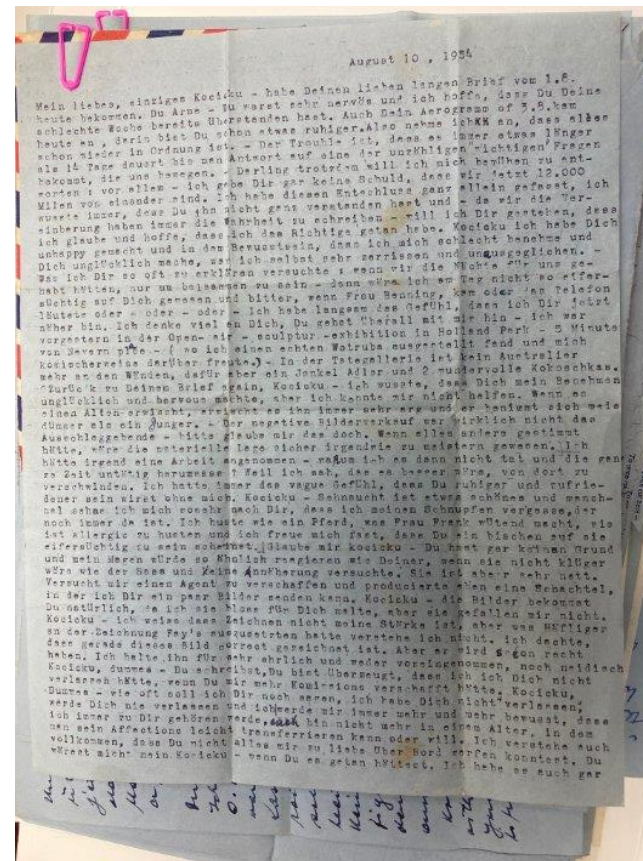 August 10 , 1954
Mein liebes, einziges Kocicku - habe Deinen lieben langen Brief vom 1.8.
heute bekommen. Du Arme - Du warst sehr nervös und ich hoffe, dass Du Deine
schlechte Woche bereits überstanden hast. Auch Dein Aerogramm of 3.8.kam
heute an , darin bist Du schon etwas ruhiger.Also nehme ich an, dass alles
schon wieder in Ordnung ist. - Der Trouble ist, dass es immer etwas länger
als 14 Tage dauert bis man Antwort auf eine der unzähligen "wichtigen" Fragen
bekommt, die uns bewegen. - Derling trotzdem will ich mich bemühen zu ant-
worten : vor allem - ich gebe Dir gar keine Schuld, dass wir jetzt 12.000
Milen von einander sind. Ich habe diesen Entschluss ganz allein gefasst, ich
wusste immer, dass Du ihn nicht ganz verstanden hast und - da wir die Ver-
einberung haben immer die Wahrheit zu schreiben - will ich Dir gestehen, dass
ich glaube und hoffe, dass ich das Richtige getan habe. Kocicku ich habe Dich
unhappy gemacht und in dem Bewusstsein, dass ich mich schlecht benehme und
Dich unglücklich mache, war ich selbst sehr zerrissen und unausgeglichen. -
Was ich Dir so oft zu erklären versuchte : wenn wir die Nächte für uns ge-
habt hätten, nur um beisammen zu sein - dann wäre ich am Tag nicht so eifer-
süchtig auf Dich gewesen und bitter, wenn Frau Henning, kam oder das Telefon
läutete oder - oder - oder - Ich habe langsam das Gefühl, dass ich Dir jetzt
näher bin. Ich denke viel an Dich, Du gehst überall mit mir hin - ich war
vorgestern in der Open-air - sculptur -exhibition in Holland Park - 5 Minute
von Nevern ( wo ich einen echten Wotruba ausgestellt fand und mich
komischerweise darüber freute.) - In der Tategallerie ist kein Australier
mehr an den Wänden, dafür aber ein Jankel Adler und 2 wundervolle Kokoschkas.
Zurück zu Deinem Brief again, Kocicku - ich wusste, dass Dich mein Benehmen
unglücklich und nervous machte, aber ich konnte mir nicht helfen. Wenn es
einen Alten erwischt, erwischt es ihn immer sehr arg und er benimmt sich meis
dümmer als ein Junger. - Der negative Bilderverkauf war wirklich nicht das
Ausschlaggebende - bitte glaube mir das doch. Wenn alles andere gestimmt
hätte, wäre die materielle Lage sicher irgendwie zu meistern gewesen. Ich
hätte irgend eine Arbeit angenommen - warum ich es dann nicht tat und die gan
ze Zeit untätig herumsass ? Weil ich sah, dass es besser wäre, von dort zu
verschwinden. Ich hatte immer das vague Gefühl, dass Du ruhiger und zufrie-
dener sein wirst ohne mich. Kocicku - Sehnsucht ist etwas schönes und manch-
mal sehne ich mich sosehr nach Dir, dass ich meinen Schnupfen vergesse,der
noch immer da ist. Ich huste wie ein Pferd, was Frau Frank wütend macht, sie
ist allergic zu husten und ich freue mich fast, dass Du ein bischen auf sie
eifersüchtig zu sein scheinst. Glaube mir kocicku - Du hast gar keinen Grund
und mein Magen würde so ähnlich reagieren wie Deiner, wenn sie nicht klüger
wäre wie der Sasa und keine Annäherung versuchte. Sie ist aber sehr nett.
Versucht mir einen Agent zu verschaffen und producierte eben eine Schachtel,
in der ich Dir ein paar Bilder senden kann. Kocicku - die Bilder bekommst
Du natürlich, da ich sie bloss für Dich malte, aber sie gefallen mir nicht.
Kocicku - ich weiss dass Zeichnen nicht meine Stärke ist, aber was Häfliger
an der Zeichnung Fay's auszusetzten hatte verstehe ich nicht. ich dachte,
dass gerade dieses Bild correct gezeichnet ist. Aber er wird schon recht
haben. Ich halte ihn für sehr ehrlich und weder voreingenommen, noch neidisch
Kocicku, dummes - Du schreibst,Du bist überzeugt, dass ich Dich nicht
verlassen hätte, wenn Du mir mehr Komissions verschafft hätte. Kocicku,
Dummes - wie oft soll ich Dir noch sagen, ich habe Dich nicht verlassen,
werde Dich nie verlassen und ich werde mir immer mehr und mehr bewusst, dass
ich immer zu Dir gehören werde, bin nicht mehr in einem Alter, in dem
man sein Affections leicht transferrieren kann oder will. Ich verstehe auch
vollkommen, dass Du nicht alles mir zu liebe über Bord werfen konntest. Du
wärest nicht mein Kocicku - wenn Du es getan hättest. Ich habe es auch gar